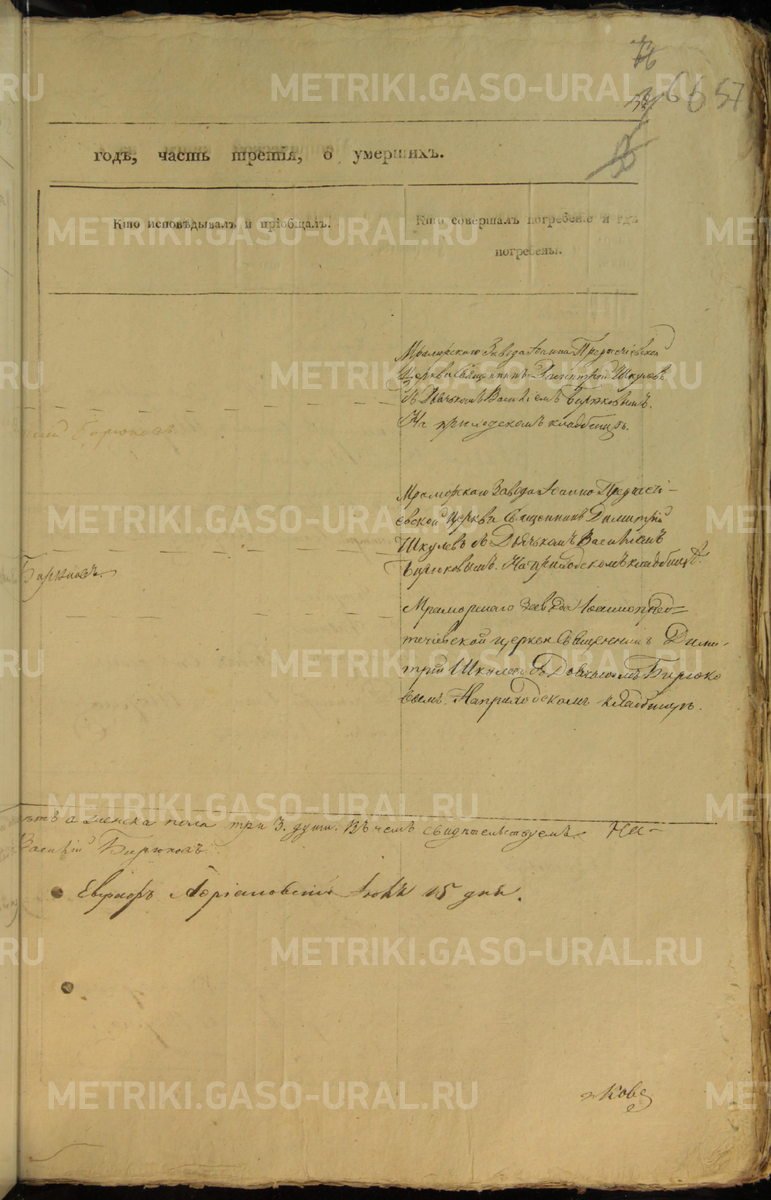 66 57
годъ, часть третія, о умершихъ.
Кто исповѣдывалъ и пріобщалъ.
Кто совершалъ погребеніе и гдѣ
погребены.
Мраморскаго Завода Іоанна Предтечіевской
Церкви Священникъ Димитрій Шкулевъ
съ Дьячкомъ Василіемъ Бирюковымъ.
На приходскомъ кладбищѣ.
Бирюковъ
Мраморскаго Завода Іоанно Предтечі-
евской Церкви Священникъ Димитрій
Шкулевъ съ Дьячкомъ Василіемъ
Бирюковымъ. На приходскомъ кладбищѣ.
Бирюковъ.
Мраморскаго Завода Іоаннопред=
течіевской церкви Священникъ Дими-
трій Шкулевъ съ Дьячкомъ Бирюко
вымъ. На приходскомъ кладбищѣ.
а женска пола три 3. души. Въ чемъ свидѣтельствуемъ
Василій Бирюковъ.
15 дня.
METRIKI.GASO-URAL.RU